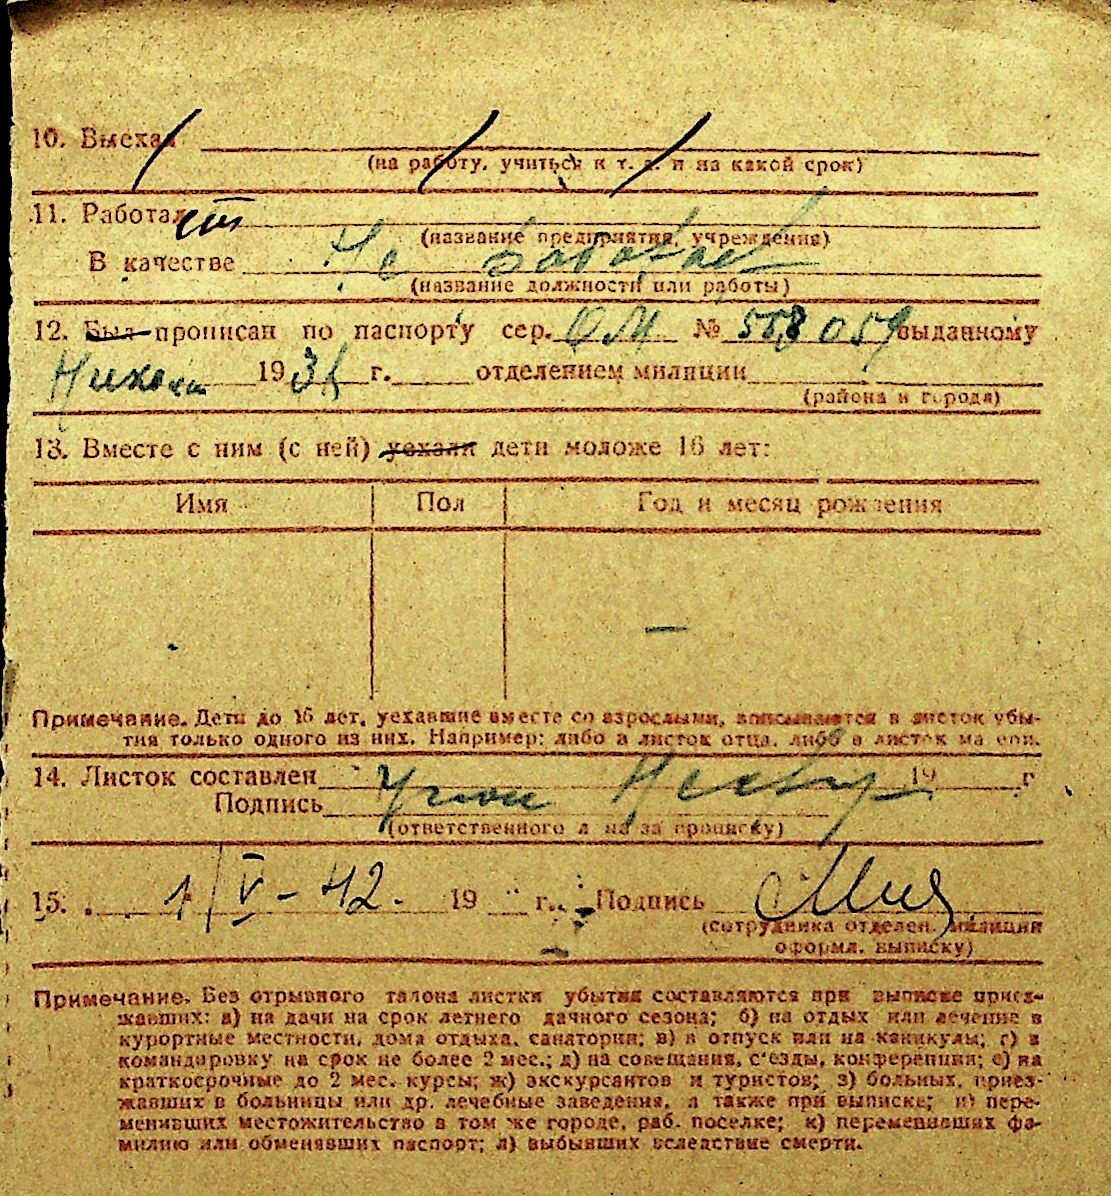 10. Выехал
(на работу, учиться и т. д. и на какой срок)
11. Работал
(название предприятия, учреждения)
В качестве Не работает
(название должности или работы)
12. Был прописан по паспорту сер. ОМ № 558059 выданному
19 г. отделением милиции
(района и города)
13. Вместе с ним (с ней) уехали дети моложе 16 лет:
Имя Пол Год и месяц рождения
—
Примечание. Дети до 16 лет, уехавшие вместе со взрослыми, вписываются в листок убы-
тия только одного из них. Например: либо в листок отца, либо в листок матери.
14. Листок составлен 19 г
Подпись
(ответственного лица за прописку)
15. 1/V-42. 19 г. Подпись
(сотрудника отделен. милиции
оформл. выписку)
Примечание. Без отрывного талона листки убытия составляются при выписке приез-
жавших: а) на дачи на срок летнего дачного сезона; б) на отдых или лечение в
курортные местности, дома отдыха, санатории; в) в отпуск или на каникулы; г) в
командировку на срок не более 2 мес.; д) на совещания, с'езды, конференции; е) на
краткосрочные до 2 мес. курсы; ж) экскурсантов и туристов; з) больных, приез-
жавших в больницы или др. лечебные заведения, а также при выписке; и) пере-
менивших местожительство в том же городе, раб. поселке; к) переменивших фа-
милию или обменявших паспорт; л) выбывших вследствие смерти.